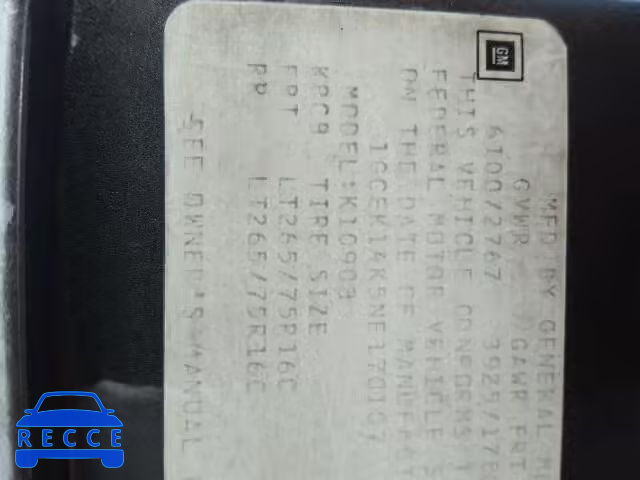 GM
MFD BY GENERAL MO
GVWR GAWR FRT
6100/2767 3925/178
THIS VEHICLE CONFORMS T
FEDERAL MOTOR VEHICLE S
ON THE DATE OF MANUFACT
1GCEK14K5NE170167
MODEL:K10903
K2C9 TIRE SIZE
FRT LT265/75R16C
RR LT265/75R16C
SEE OWNER'S MANUAL
RECCE